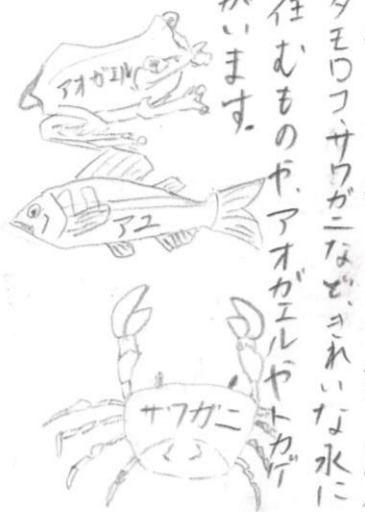 タモロコ、サワガニなど、きれいな水に
住むものや、アオガエルやトカゲ
がいます。
アオガエル
アユ
サワガニ